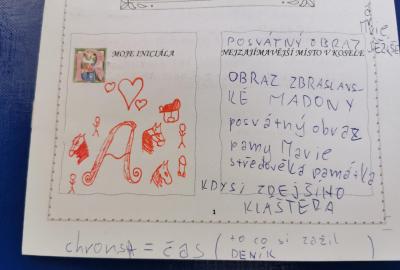 MOJE INICIÁLA
A
POSVÁTNÝ OBRAZ
NEJZAJÍMAVĚJŠÍ MÍSTO V KOSTELE
OBRAZ ZBRASLAVS-
KÉ MADONY
posvátný obraz
pamy Mavie
středověká památka
KDYSI ZDEJŠÍHO
KLÁŠTERA
1
chronos = čas (to co si zažil
DENÍK